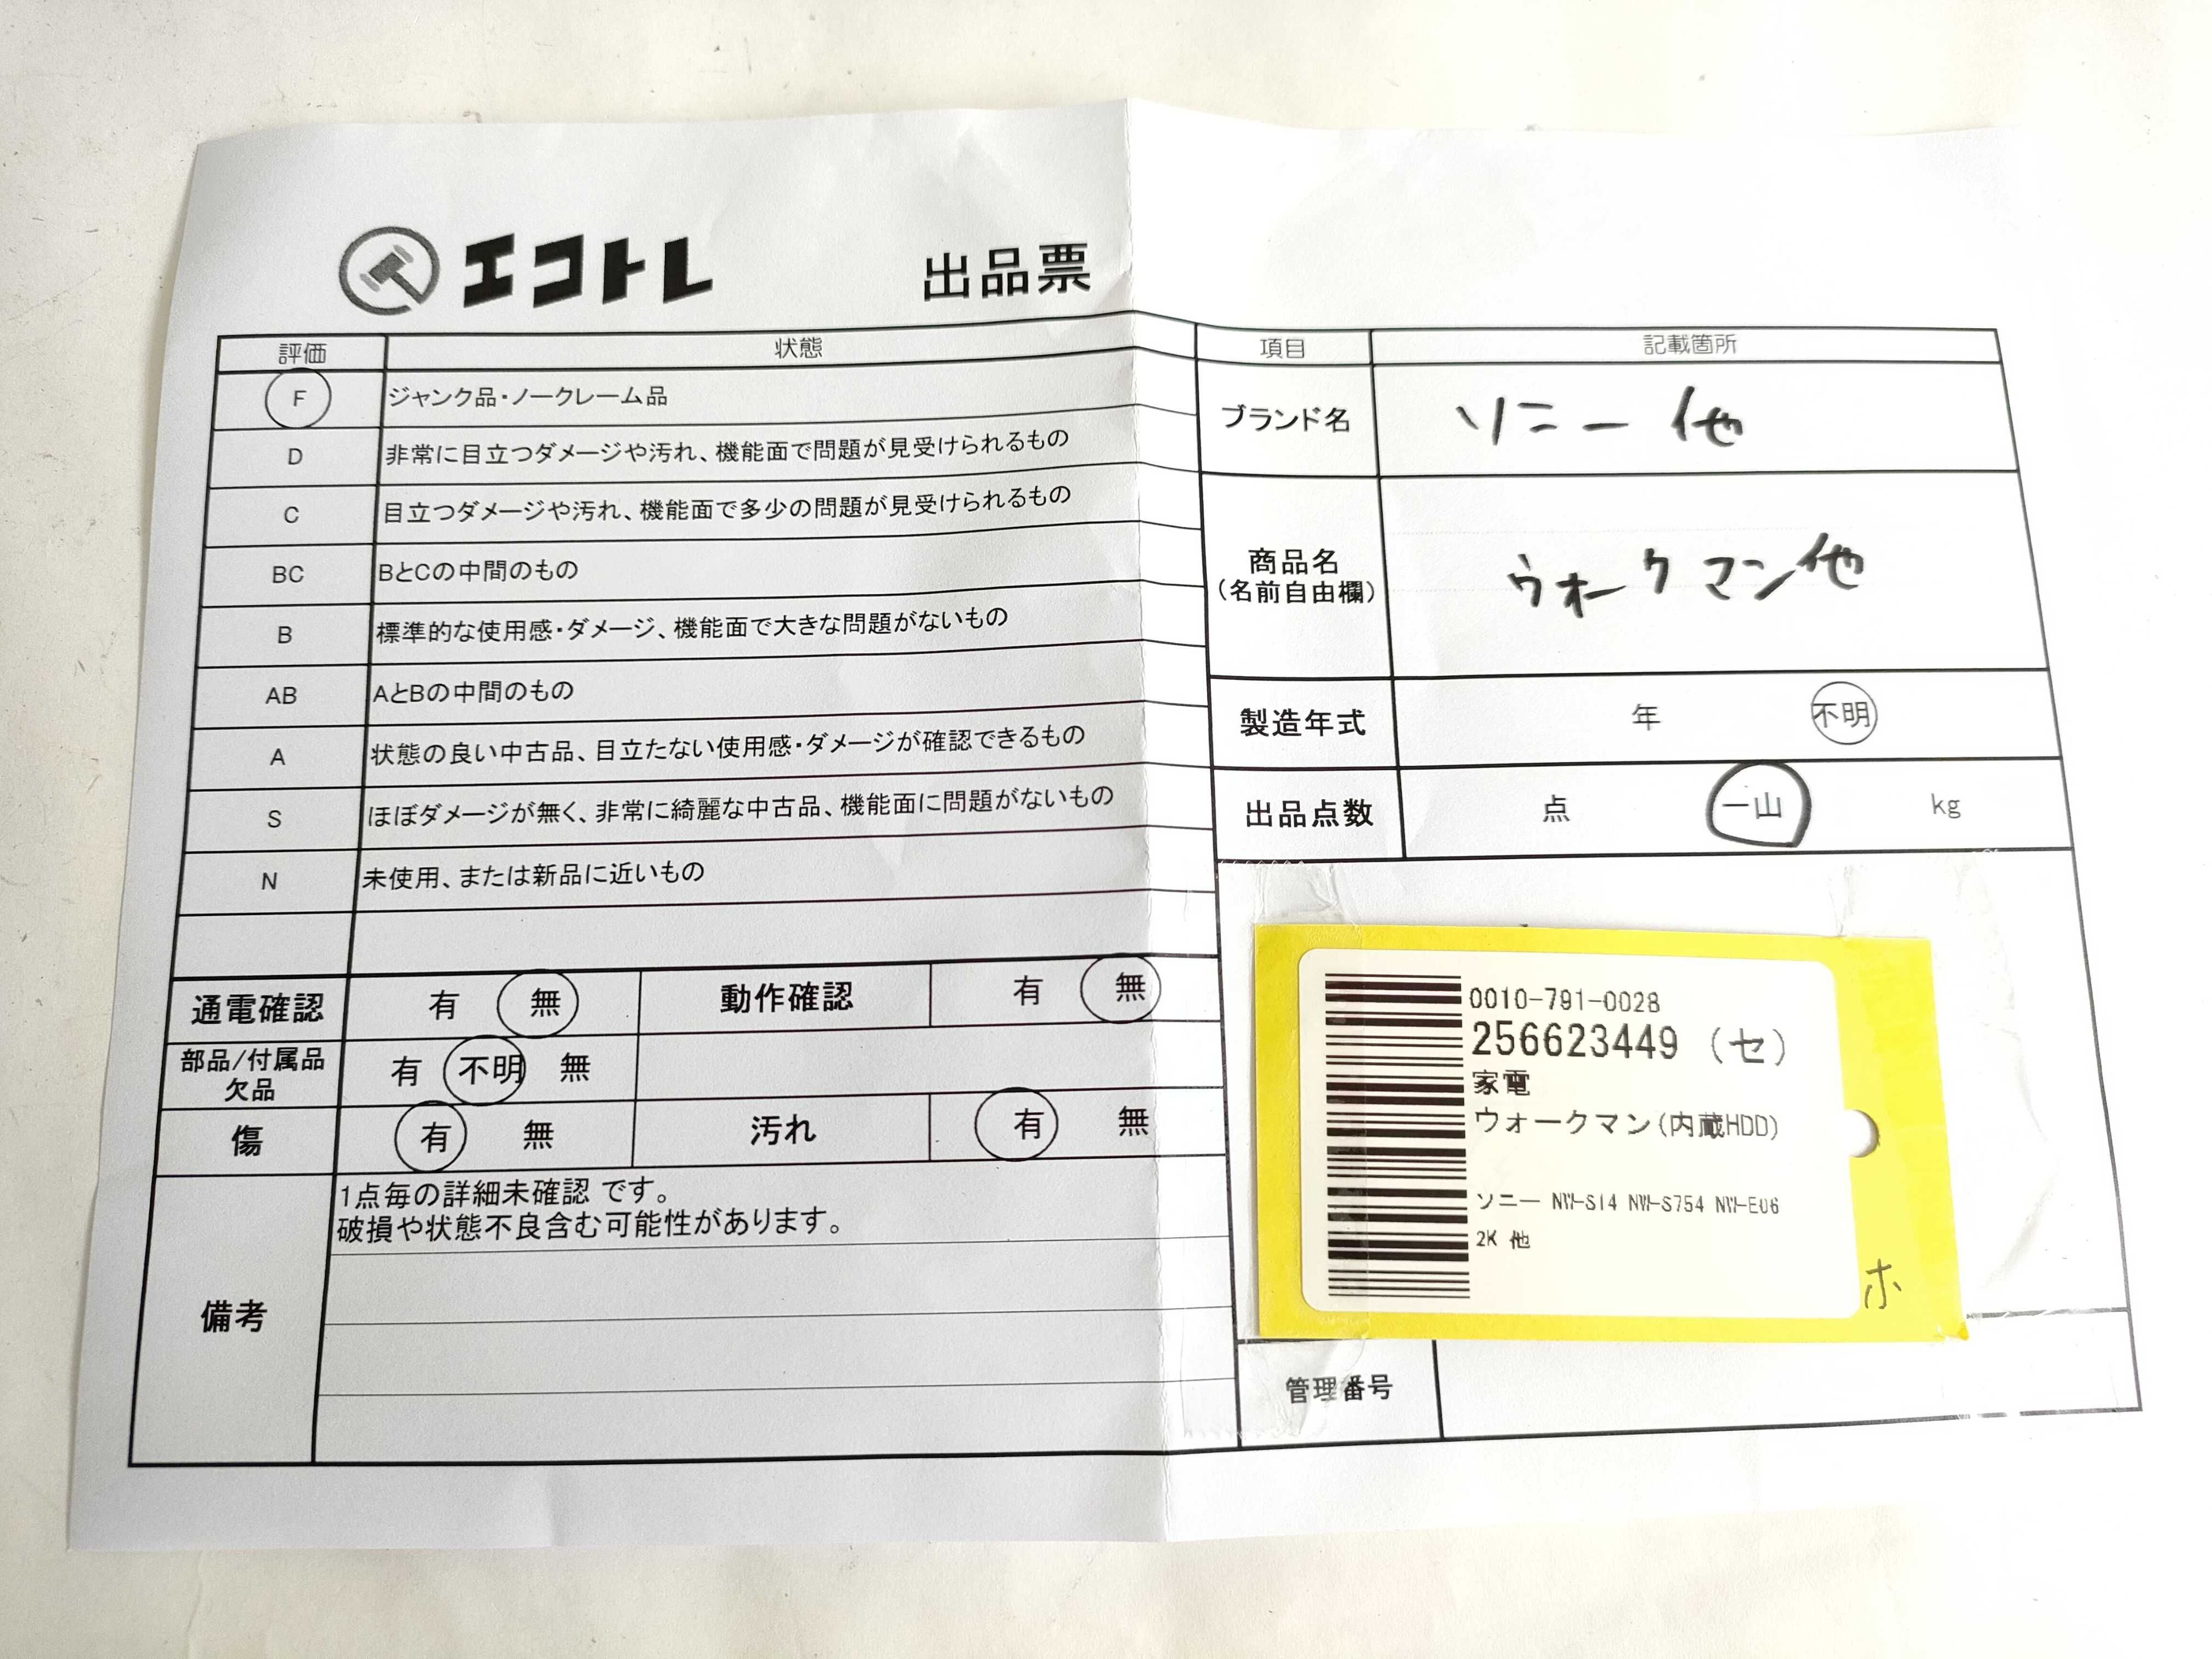 エコトレ 出品票
評価 状態
F ジャンク品・ノークレーム品
D 非常に目立つダメージや汚れ、機能面で問題が見受けられるもの
C 目立つダメージや汚れ、機能面で多少の問題が見受けられるもの
BC BとCの中間のもの
B 標準的な使用感・ダメージ、機能面で大きな問題がないもの
AB AとBの中間のもの
A 状態の良い中古品、目立たない使用感・ダメージが確認できるもの
S ほぼダメージが無く、非常に綺麗な中古品、機能面に問題がないもの
N 未使用、または新品に近いもの
通電確認 有 無 動作確認 有 無
部品/付属品 有 不明 無
欠品
傷 有 無 汚れ 有 無
備考
1点毎の詳細未確認 です。
破損や状態不良含む可能性があります。
項目 記載箇所
ブランド名 ソニー 他
商品名 ウォークマン他
(名前自由欄)
製造年式 年 不明
出品点数 点 一山 kg
0010-791-0028
256623449 (セ)
家電
ウォークマン(内蔵HDD)
ソニー NW-S14 NW-S754 NW-E06
2K 他
ホ
管理番号